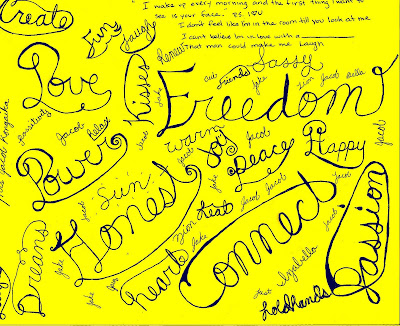 Create
I wake up every morning and the first thing I want to
see is your face. P.S. I OU
I don't feel like I'm in the room till you look at me
I can't believe I'm in love with a
That man could make me laugh
fun
laugh
Love
Kisses
Sassy
friends
Jake
Zion Jacob
Freedom
positivity
Jacob
Relax
Warm
Jacob
Joy
Jacob
Happy
Jacob
Power
Peace
Jacob
Sun
Honest
Jacob
Jacob
Jacob
Zion
heat
Jake
Connect
Jacob
Passion
Dreams
Jake
heart
Izabella
hold hands